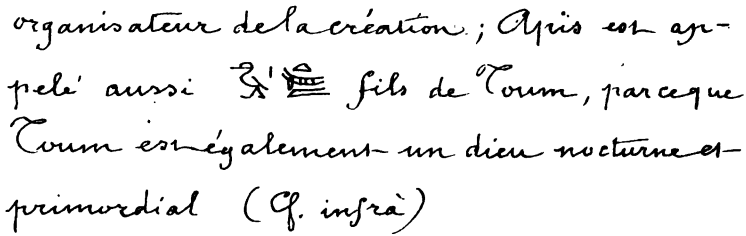 organisateur de la création ; Apis est ap-
pelé aussi fils de Toum, parceque
Toum est également un dieu nocturne et
primordial (Cf. infrà)